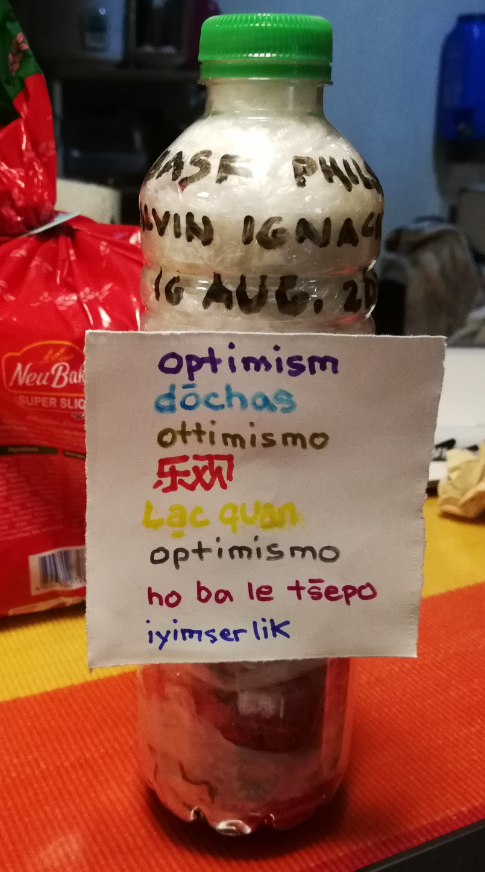 PHIL
LVIN IGNACI
16 AUG. 20
optimism
dōchas
ottimismo
乐观
Lạc quan
optimismo
ho ba le tšepo
iyimşerlik
Neu Bak
SUPER SLIC